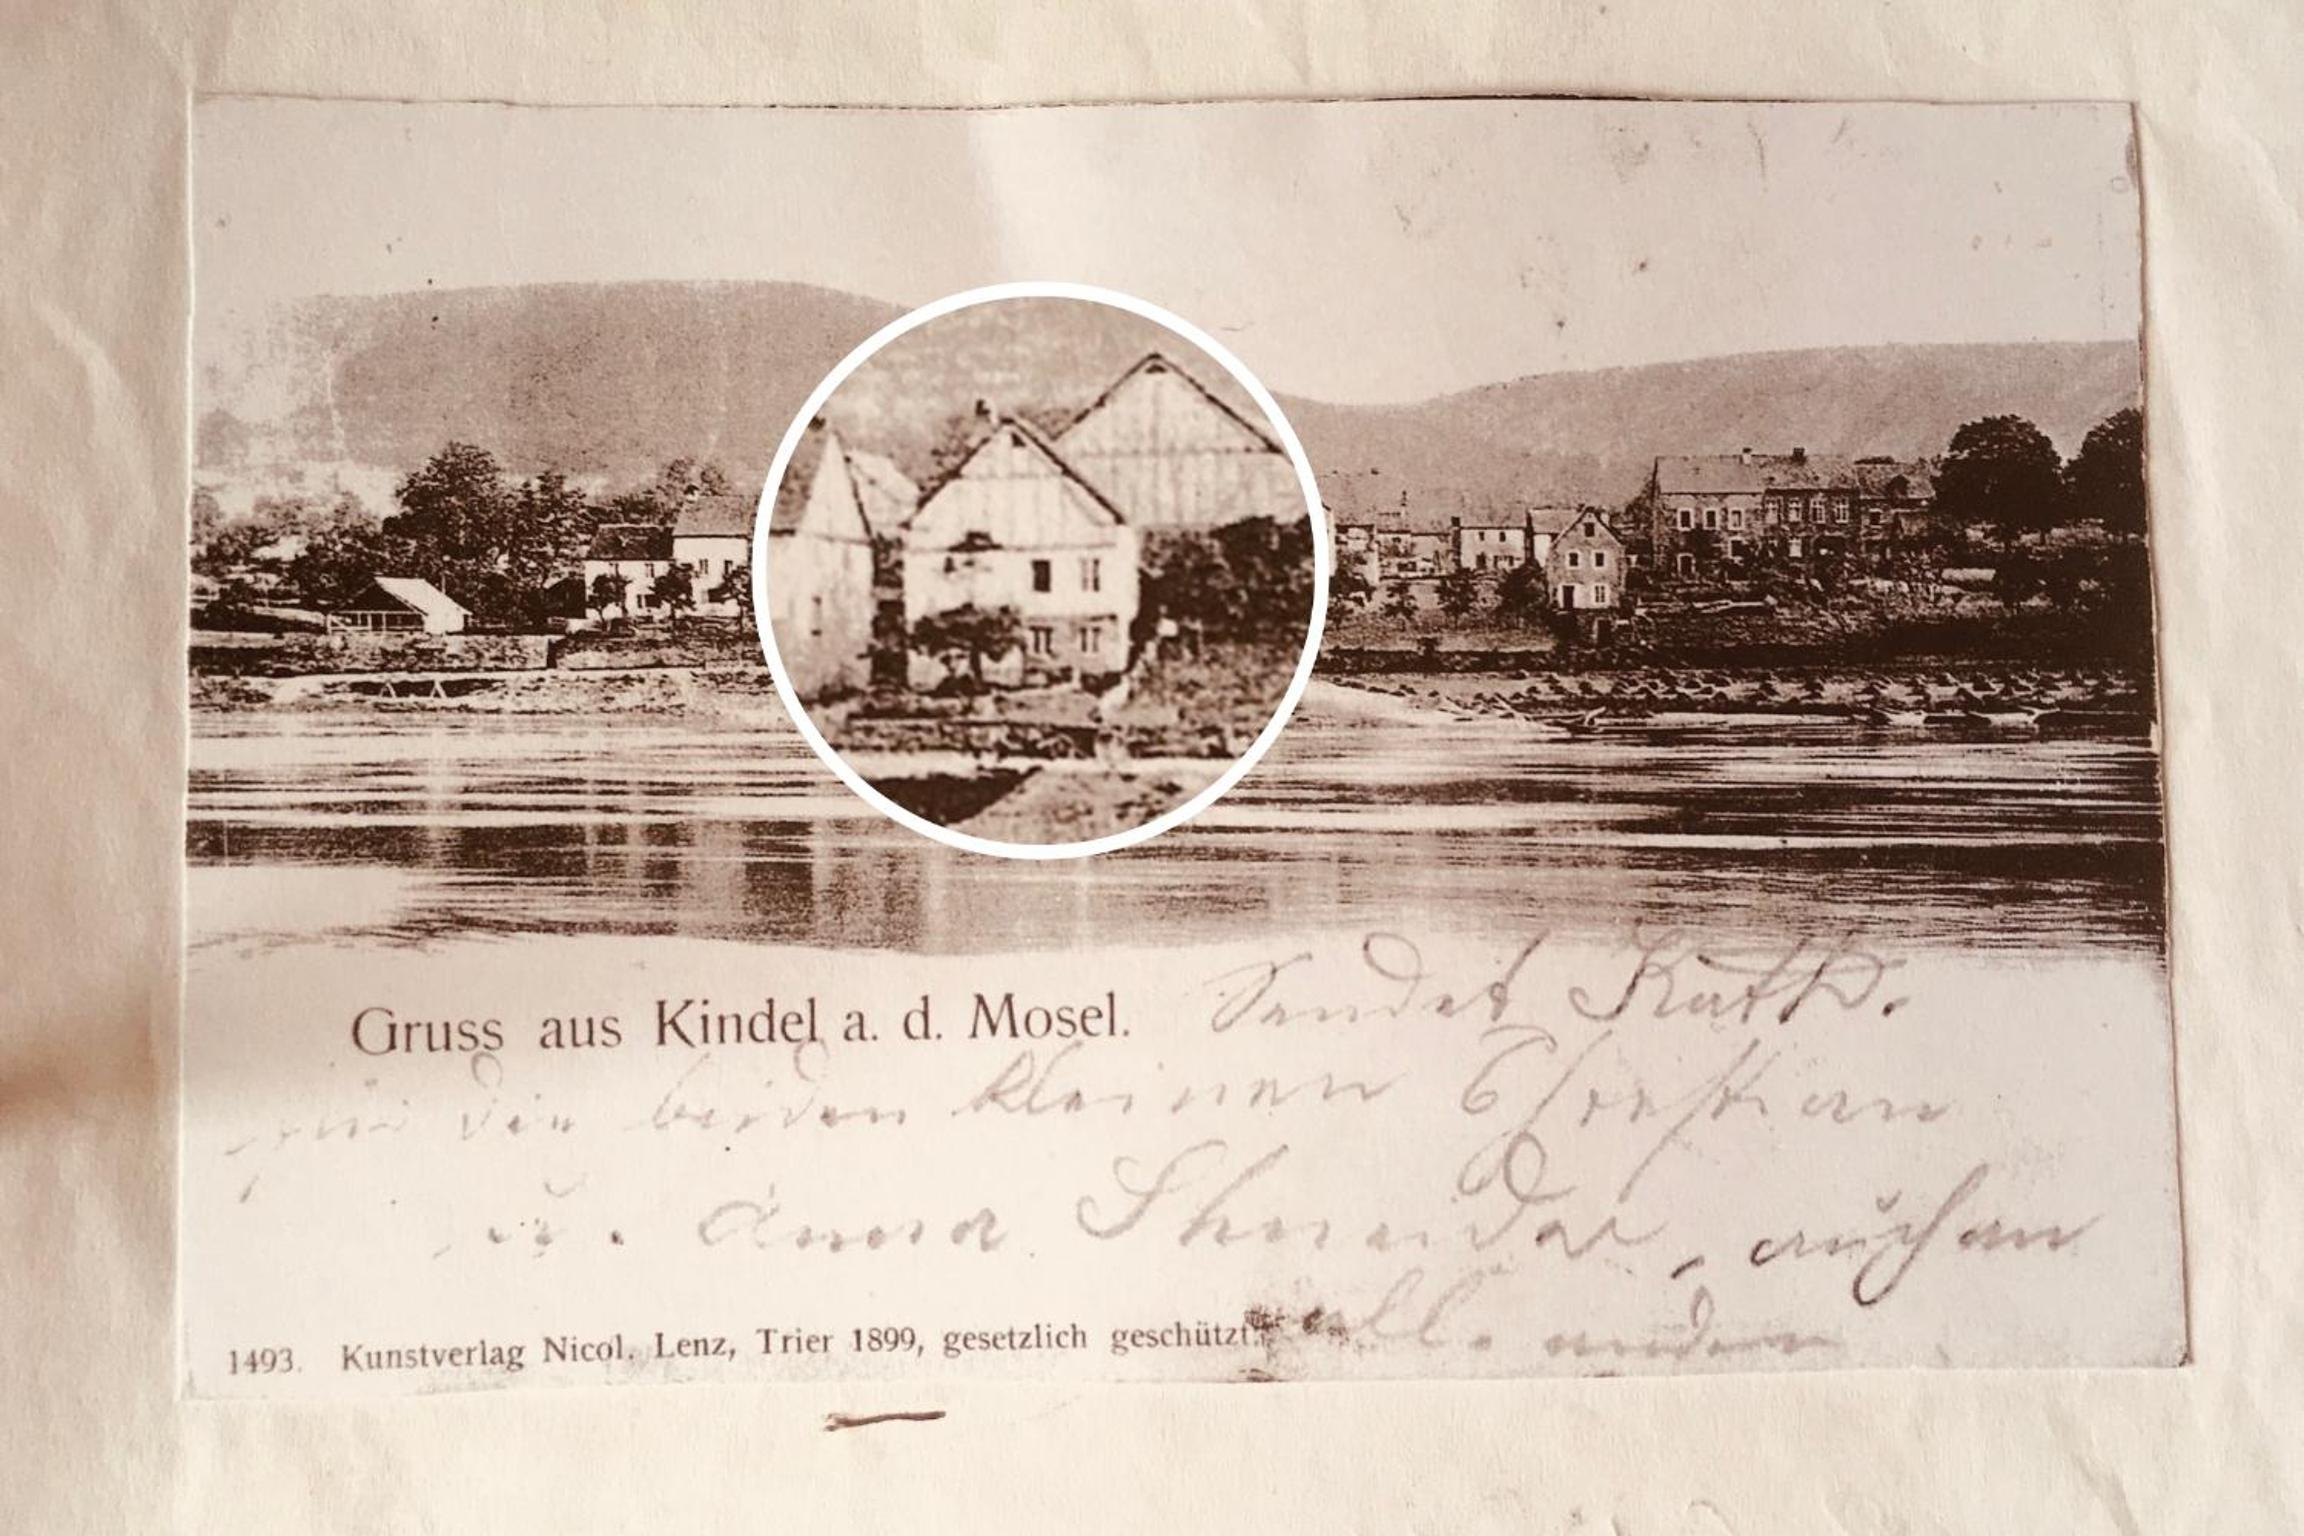 Gruss aus Kindel a. d. Mosel. Sendet Kath.
für die beiden kleinen Christian
u. Anna Shneider, auch an
all. andern
1493. Kunstverlag Nicol. Lenz, Trier 1899, gesetzlich geschützt.